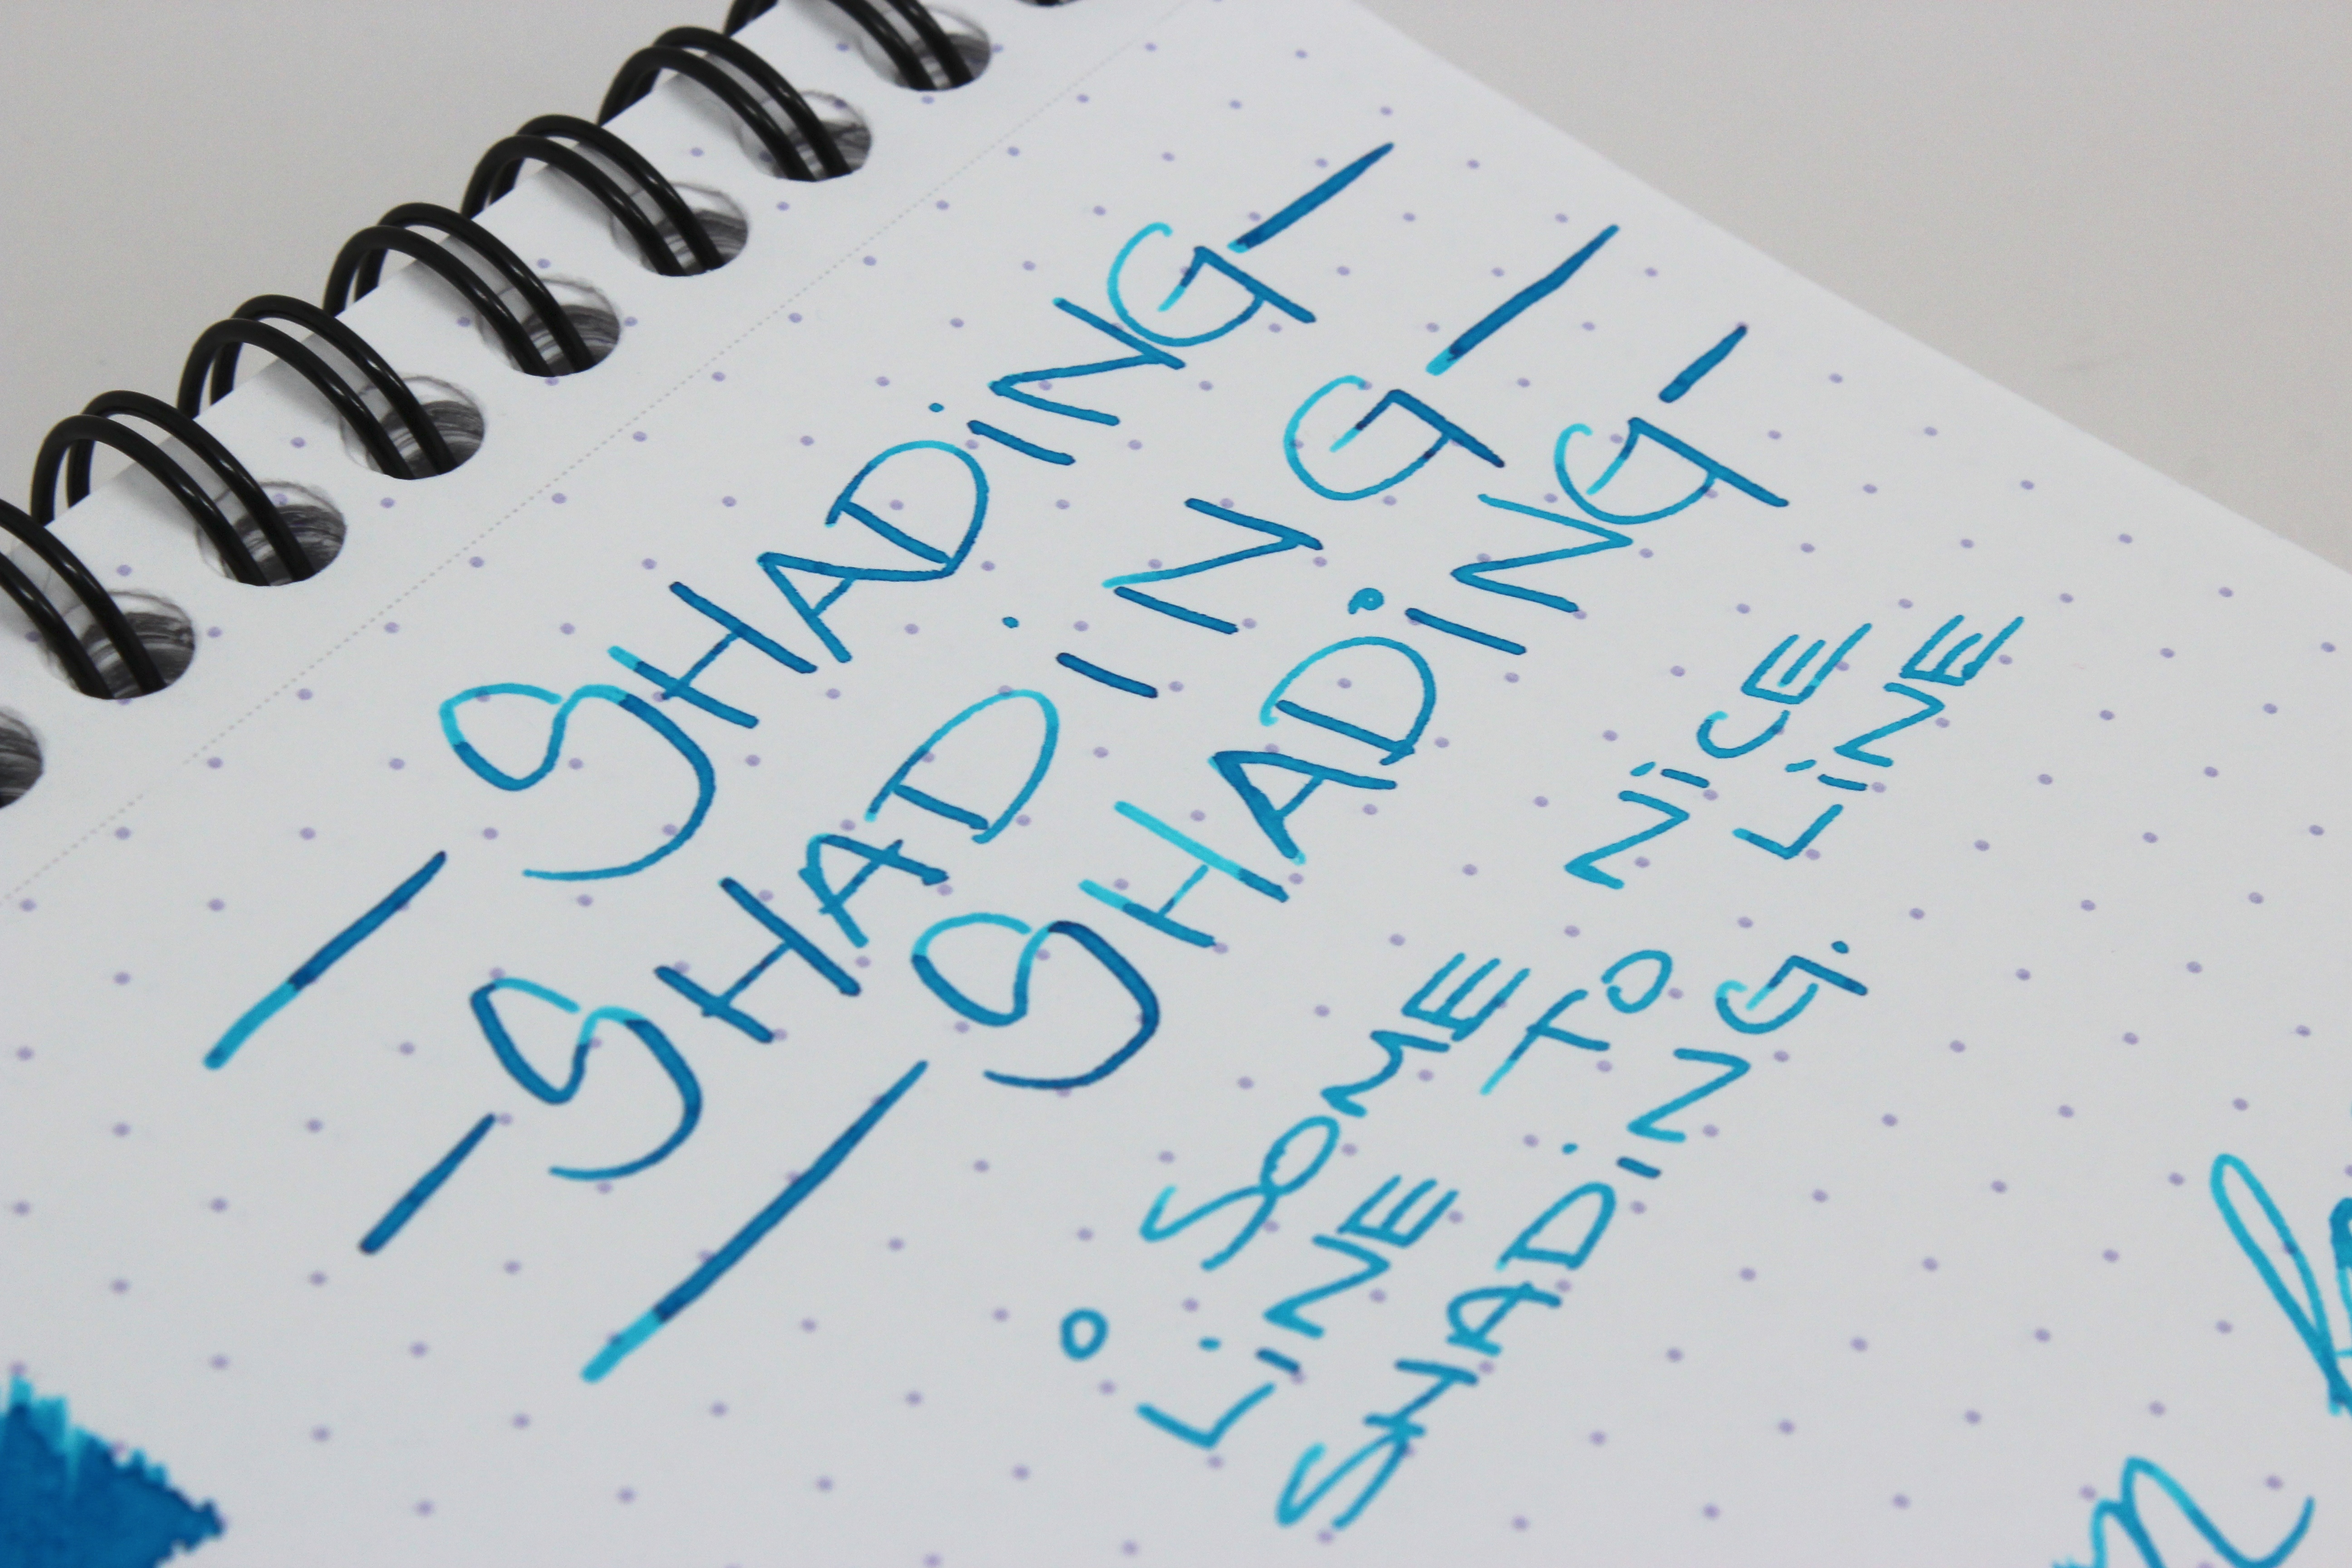 — SHADiNG —
— SHADiNG —
— SHADiNG —
° SOME NiCE
LiNE TO LiNE
SHADiNG.